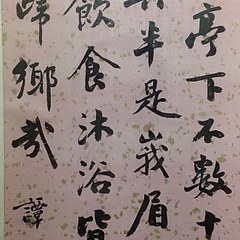 亭下不數十
半是峩眉
飲食沐浴皆
歸鄉哉
譚